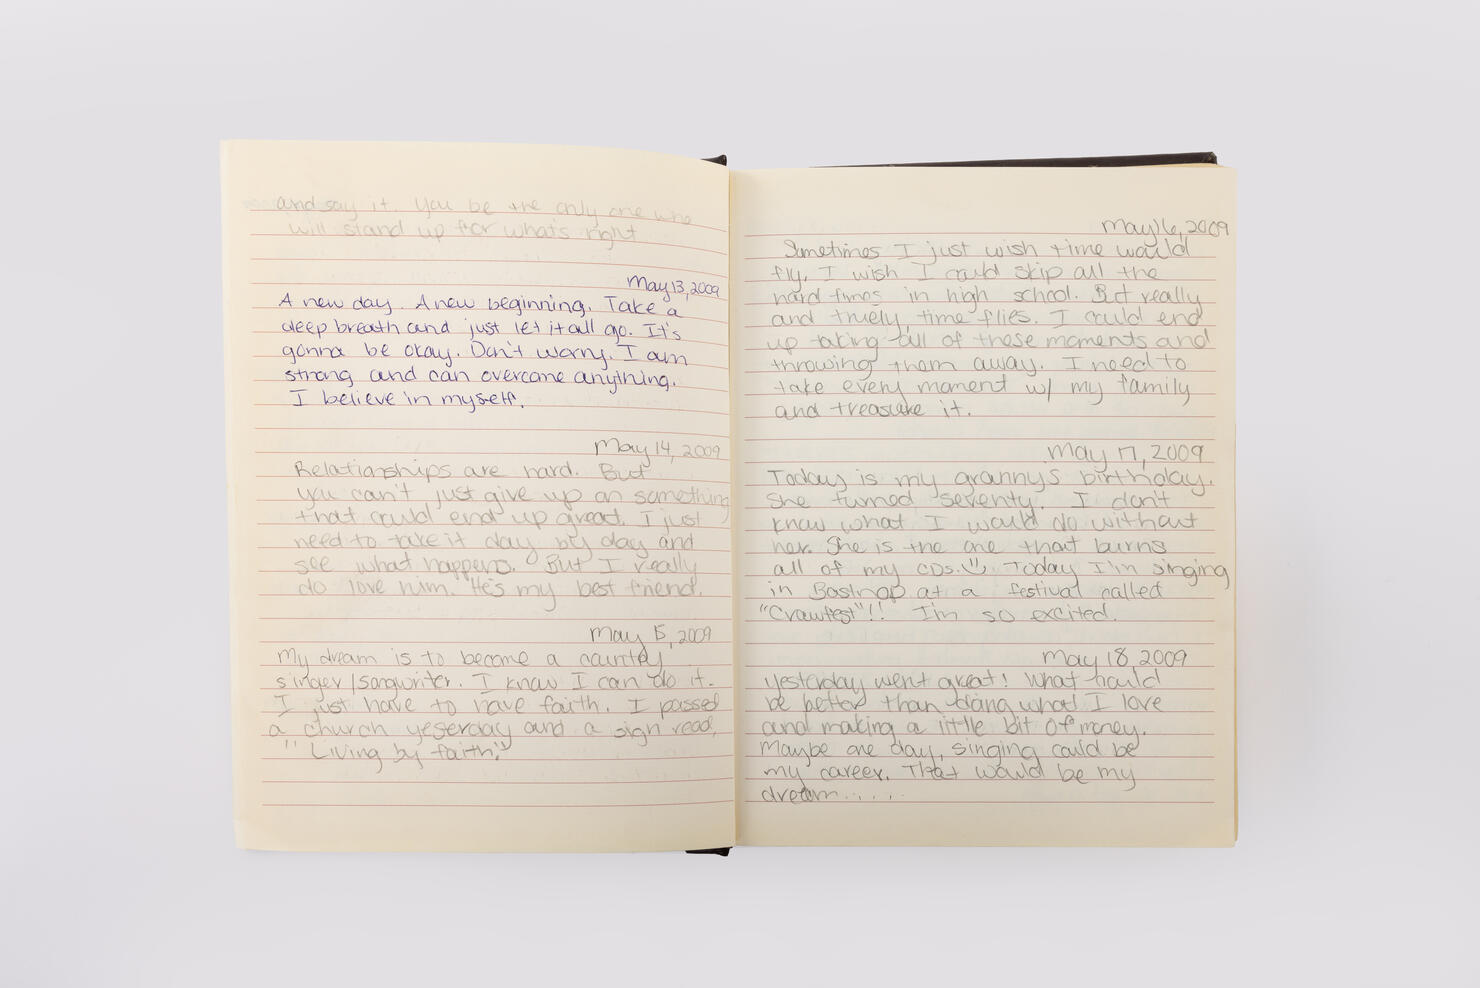 and say it. You be the only one who
will stand up for what's right
May 13, 2009
A new day. A new beginning. Take a
deep breath and just let it all go. It's
gonna be okay. Don't worry. I am
strong and can overcome anything.
I believe in myself.
May 14, 2009
Relationships are hard. But
you can't just give up on something
that could end up great. I just
need to take it day by day and
see what happens. But I really
do love him. He's my best friend.
May 15, 2009
My dream is to become a country
singer/songwriter. I know I can do it.
I just have to have faith. I passed
a church yesterday and a sign read,
"Living by faith."
May 16, 2009
Sometimes I just wish time would
fly. I wish I could skip all the
hard times in high school. But really
and truely, time flies. I could end
up taking all of these moments and
throwing them away. I need to
take every moment w/ my family
and treasure it.
May 17, 2009
Today is my granny's birthday.
She turned seventy. I don't
know what I would do without
her. She is the one that burns
all of my CDs. Today I'm singing
in Bastrop at a festival called
"Crawfest"!! I'm so excited.
May 18, 2009
Yesterday went great! What could
be better than doing what I love
and making a little bit of money.
Maybe one day, singing could be
my career. That would be my
dream.....